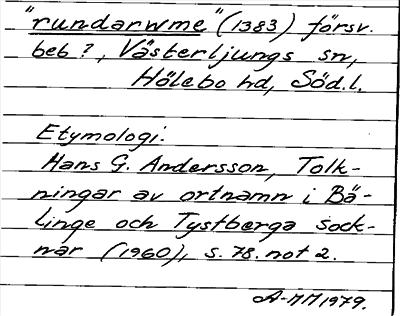 "rundarwme" (1383) försv.
beb?, Västerljungs sn,
Hölebo hd, Söd.l.
Etymologi:
Hans G. Andersson, Tolk-
ningar av ortnamn i Bä-
linge och Tystberga sock-
nar (1960), s. 78. not 2.
A-MM 1979.